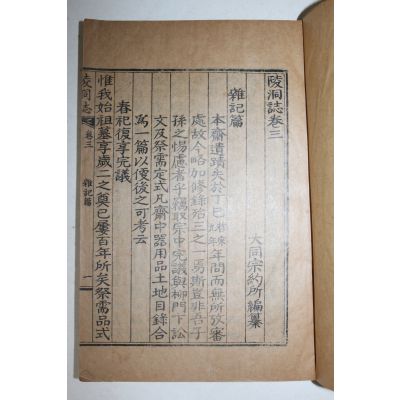 陵洞誌卷三
大同宗約所編纂
雜記篇
本齋遺蹟失於丁巳年間而無所攷審
處故今略加修錄殆三之一焉斯豈非吾子
孫之惕慮者乎竊取宗中完議與柳門下訟
文及祭需定式凡齋中器用品土地目錄合
爲一篇以便後之可考云
春祀復享完議
惟我始祖墓享歲二之奠已屢百年所矣祭需品式
陵洞志 卷三 雜記篇 一